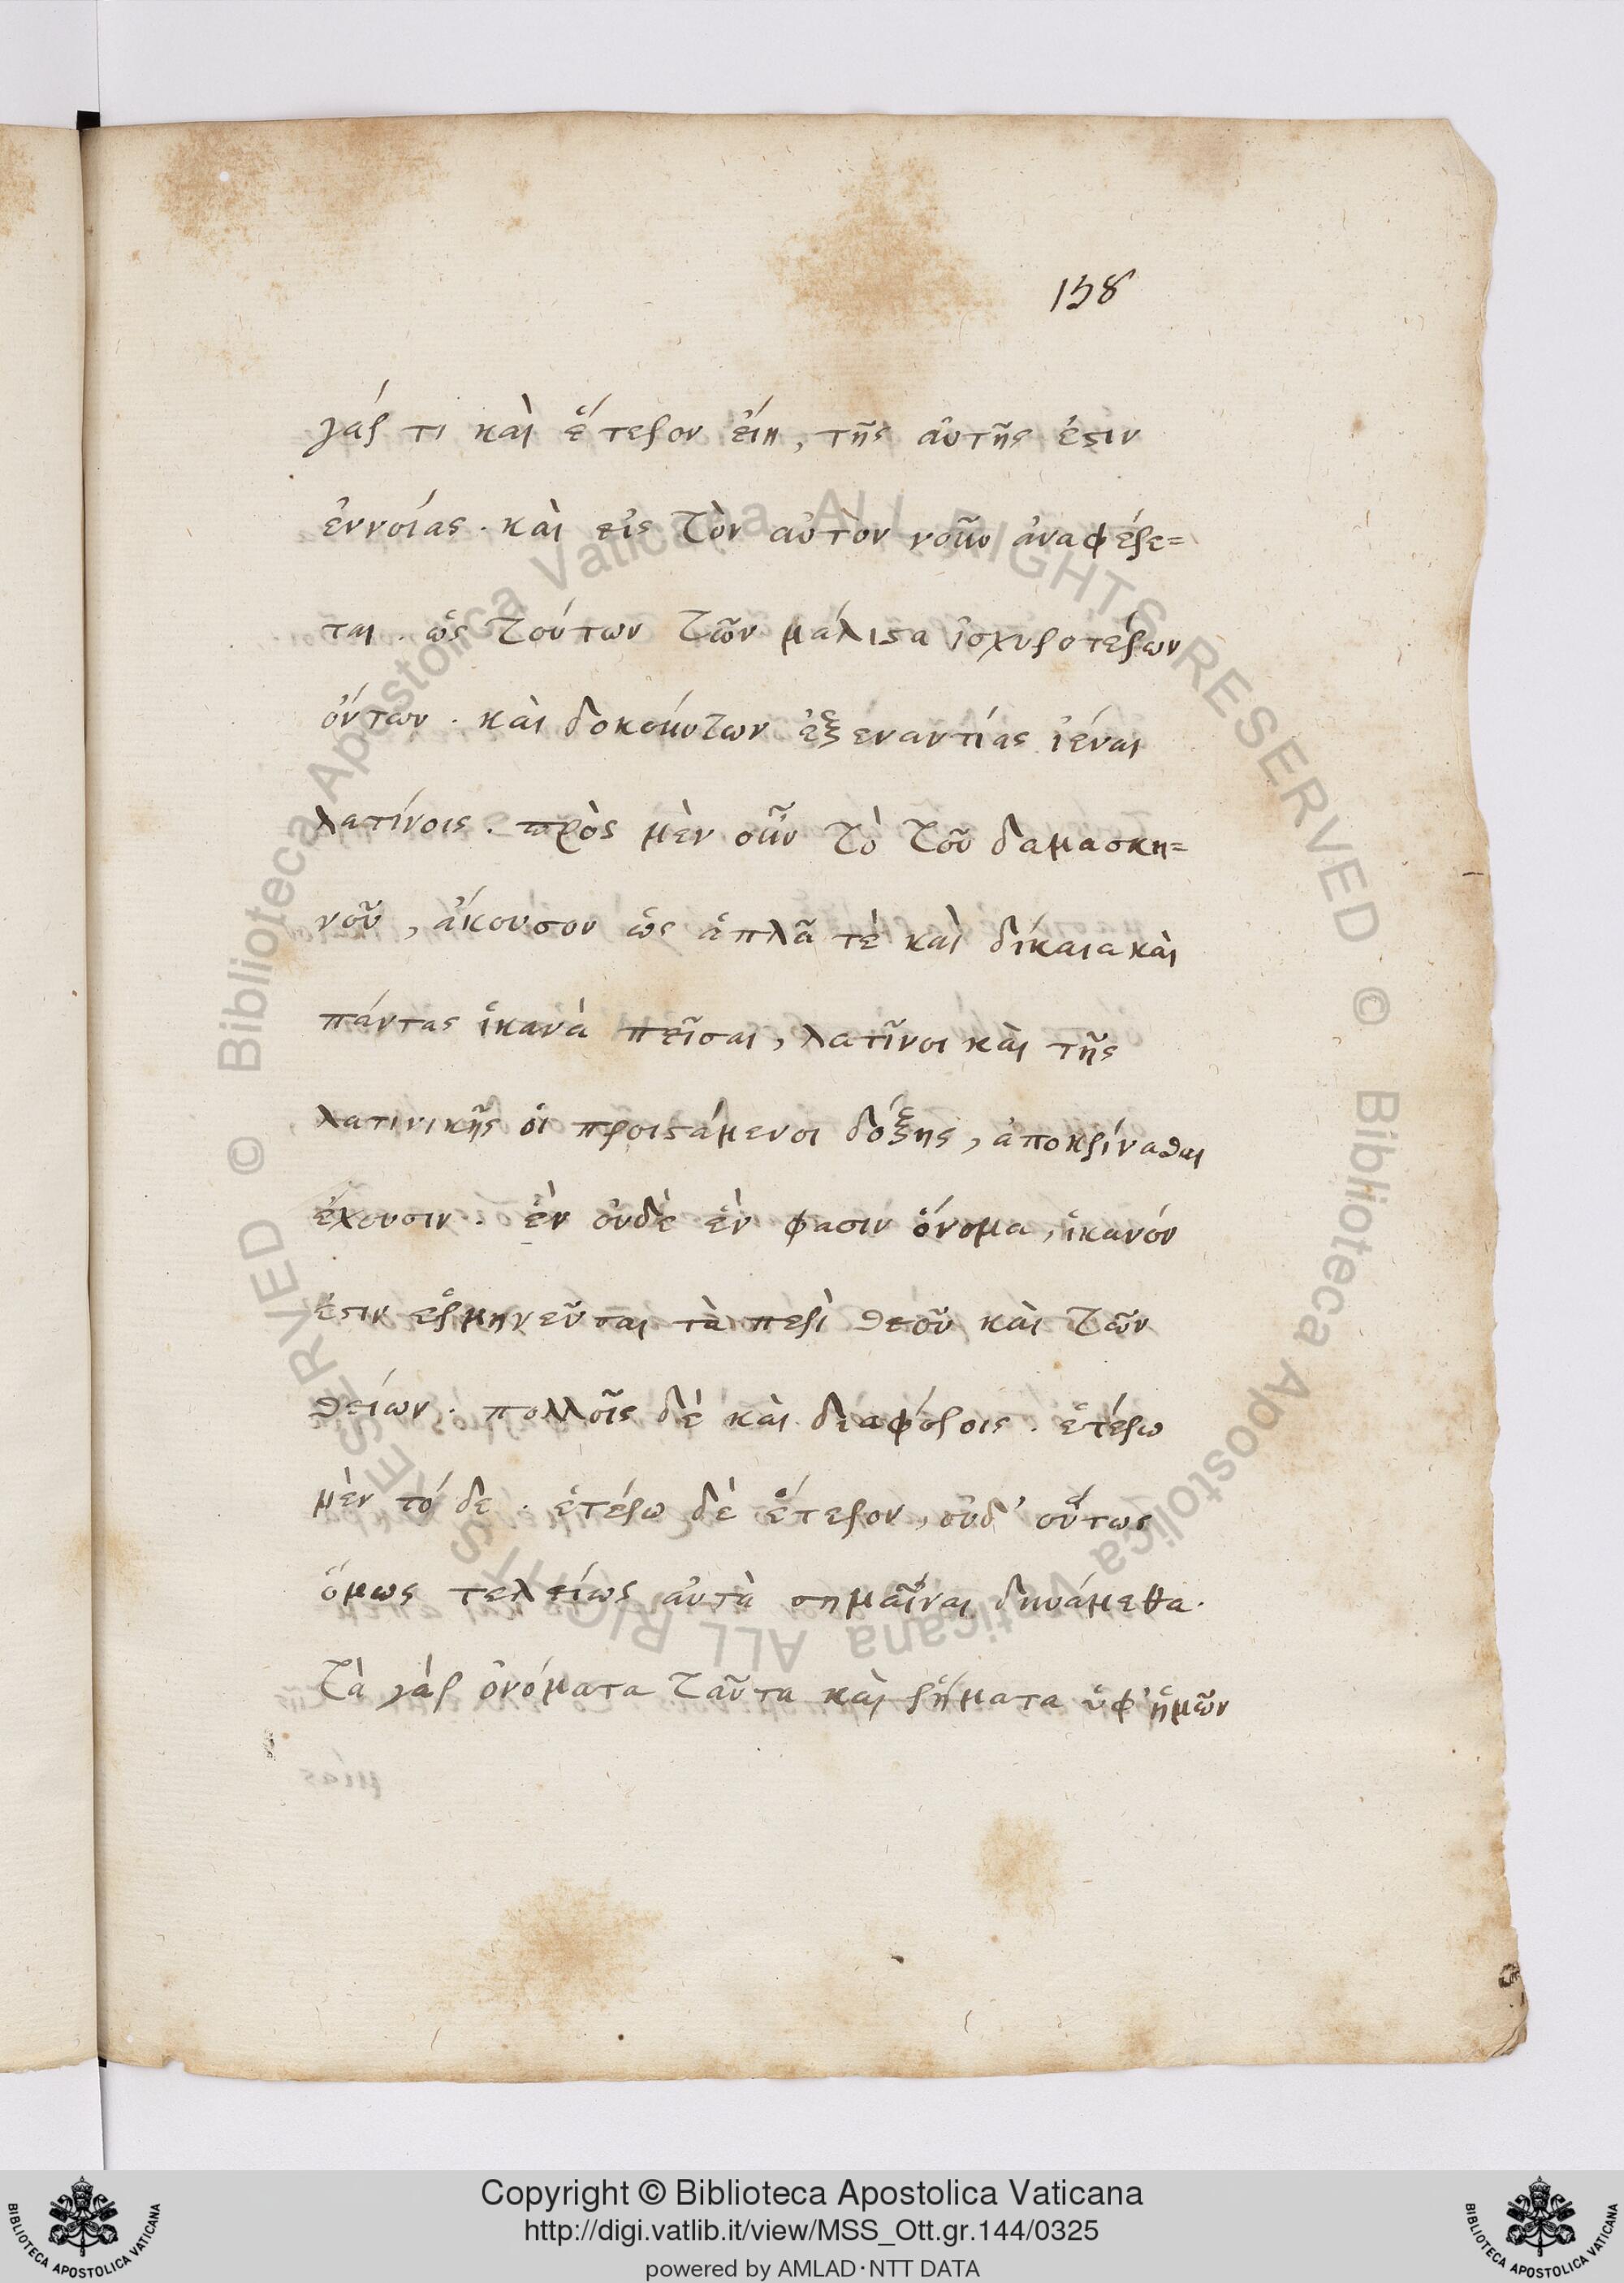 158
γάρ τι καὶ ἕτερον εἴη, τῆς αὐτῆς ἐστιν
ἐννοίας· καὶ εἰς τὸν αὐτὸν νοῦν ἀναφέρε=
ται· ὡς τούτων τῶν μάλιστα ἰσχυροτέρων
ὄντων· καὶ δοκούντων ἐξεναντίας ἰέναι
λατίνοις· πρὸς μὲν οὖν τὸ τοῦ δαμασκη=
νοῦ, ἄκουσον ὡς ἁπλᾶ τὲ καὶ δίκαια καὶ
πάντας ἱκανὰ πεῖσαι, λατῖνοι καὶ τῆς
λατινικῆς οἱ προιστάμενοι δόξης, ἀποκρίνασθαι
ἔχουσιν· ἓν οὐδὲ ἓν φασιν ὄνομα, ἱκανόν
ἐστιν ἑρμηνεῦσαι τὰ περὶ θεοῦ καὶ τῶν
θείων· πολλοῖς δὲ καὶ διαφόροις· ἑτέρω
μὲν τό δε· ἑτέρω δὲ ἕτερον, οὐδ' οὕτως
ὅμως τελείως αὐτὰ σημᾶιναι δυνάμεθα·
τὰ γὰρ ὀνόματα ταῦτα καὶ ῥήματα ὑφ' ἡμῶν
Copyright © Biblioteca Apostolica Vaticana
http://digi.vatlib.it/view/MSS_Ott.gr.144/0325
powered by AMLAD·NTT DATA
BIBLIOTECA APOSTOLICA VATICANA
BIBLIOTECA APOSTOLICA VATICANA
© Biblioteca Apostolica Vaticana ALL RIGHTS RESERVED
© Biblioteca Apostolica Vaticana ALL RIGHTS RESERVED